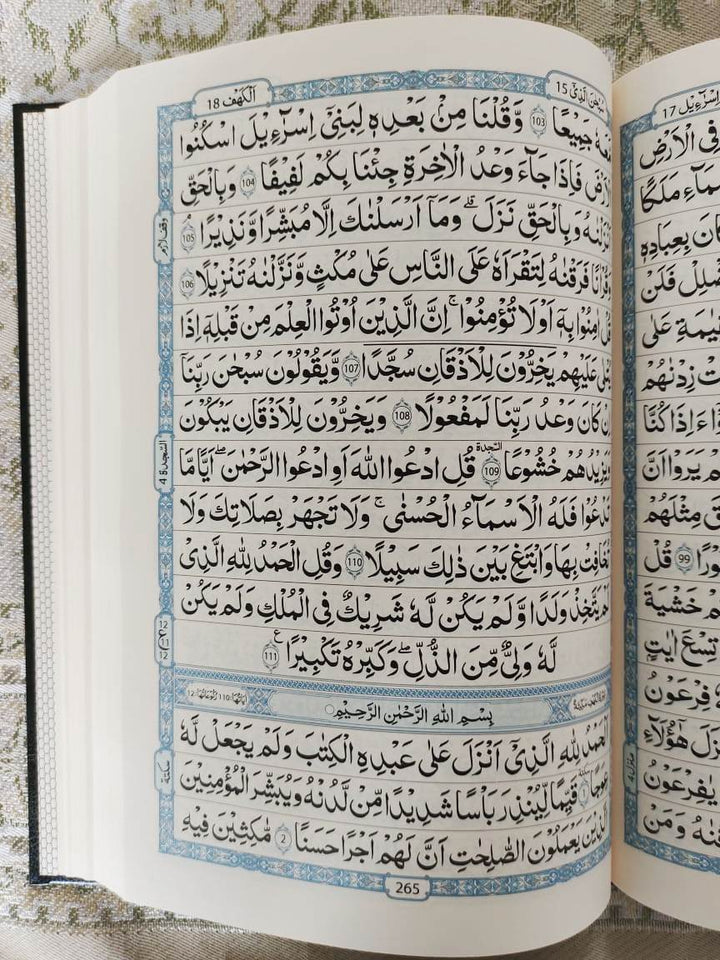 اَلْكَهْف 18
15 سُبْحٰنَ الَّذِىْ
مَّعَهٗ جَمِيْعًا ۙ 103 وَّقُلْنَا مِنْۢ بَعْدِهٖ لِبَنِىْۤ اِسْرَآءِيْلَ اسْكُنُوا
الْاَرْضَ فَاِذَا جَآءَ وَعْدُ الْاٰخِرَةِ جِئْنَا بِكُمْ لَفِيْفًا 104 وَبِالْحَقِّ
اَنْزَلْنٰهُ وَبِالْحَقِّ نَزَلَ ؕ وَمَاۤ اَرْسَلْنٰكَ اِلَّا مُبَشِّرًا وَّنَذِيْرًا 105
وَقُرْاٰنًا فَرَقْنٰهُ لِتَقْرَاَهٗ عَلَى النَّاسِ عَلٰى مُكْثٍ وَّنَزَّلْنٰهُ تَنْزِيْلًا 106
قُلْ اٰمِنُوْا بِهٖۤ اَوْ لَا تُؤْمِنُوْا ؕ اِنَّ الَّذِيْنَ اُوْتُوا الْعِلْمَ مِنْ قَبْلِهٖۤ اِذَا
يُتْلٰى عَلَيْهِمْ يَخِرُّوْنَ لِلْاَذْقَانِ سُجَّدًا 107 وَّيَقُوْلُوْنَ سُبْحٰنَ رَبِّنَاۤ
اِنْ كَانَ وَعْدُ رَبِّنَا لَمَفْعُوْلًا 108 وَيَخِرُّوْنَ لِلْاَذْقَانِ يَبْكُوْنَ
وَيَزِيْدُهُمْ خُشُوْعًا السجدة 109 قُلِ ادْعُوا اللّٰهَ اَوِ ادْعُوا الرَّحْمٰنَ ؕ اَيًّا مَّا
تَدْعُوْا فَلَهُ الْاَسْمَآءُ الْحُسْنٰى ۚ وَلَا تَجْهَرْ بِصَلَاتِكَ وَلَا
تُخَافِتْ بِهَا وَابْتَغِ بَيْنَ ذٰلِكَ سَبِيْلًا 110 وَقُلِ الْحَمْدُ لِلّٰهِ الَّذِىْ
لَمْ يَتَّخِذْ وَلَدًا وَّلَمْ يَكُنْ لَّهٗ شَرِيْكٌ فِى الْمُلْكِ وَلَمْ يَكُنْ
لَّهٗ وَلِىٌّ مِّنَ الذُّلِّ وَكَبِّرْهُ تَكْبِيْرًا 111
اٰيَاتُهَا:110 رُكُوْعَاتُهَا:12
بِسْمِ اللّٰهِ الرَّحْمٰنِ الرَّحِيْمِ
اَلْحَمْدُ لِلّٰهِ الَّذِىْۤ اَنْزَلَ عَلٰى عَبْدِهِ الْكِتٰبَ وَلَمْ يَجْعَلْ لَّهٗ
عِوَجًا 1 قَيِّمًا لِّيُنْذِرَ بَاْسًا شَدِيْدًا مِّنْ لَّدُنْهُ وَيُبَشِّرَ الْمُؤْمِنِيْنَ
الَّذِيْنَ يَعْمَلُوْنَ الصّٰلِحٰتِ اَنَّ لَهُمْ اَجْرًا حَسَنًا 2 مّٰكِثِيْنَ فِيْهِ
265
وقف لازم
السجدة 4
12
ع 11
12
سكتة
17
فِى الْاَرْضِ
مَلَكًا
كَانَ بِعِبَادِهٖ
فَلَنْ
عَلٰى
زِدْنٰهُمْ
ءَاِذَا كُنَّا
يَرَوْا اَنَّ
مِثْلَهُمْ
99 قُلْ
خَشْيَةَ
تِسْعَ اٰيٰتٍ
فِرْعَوْنُ
هٰۤؤُلَآءِ
يٰفِرْعَوْنُ
وَمَنْ